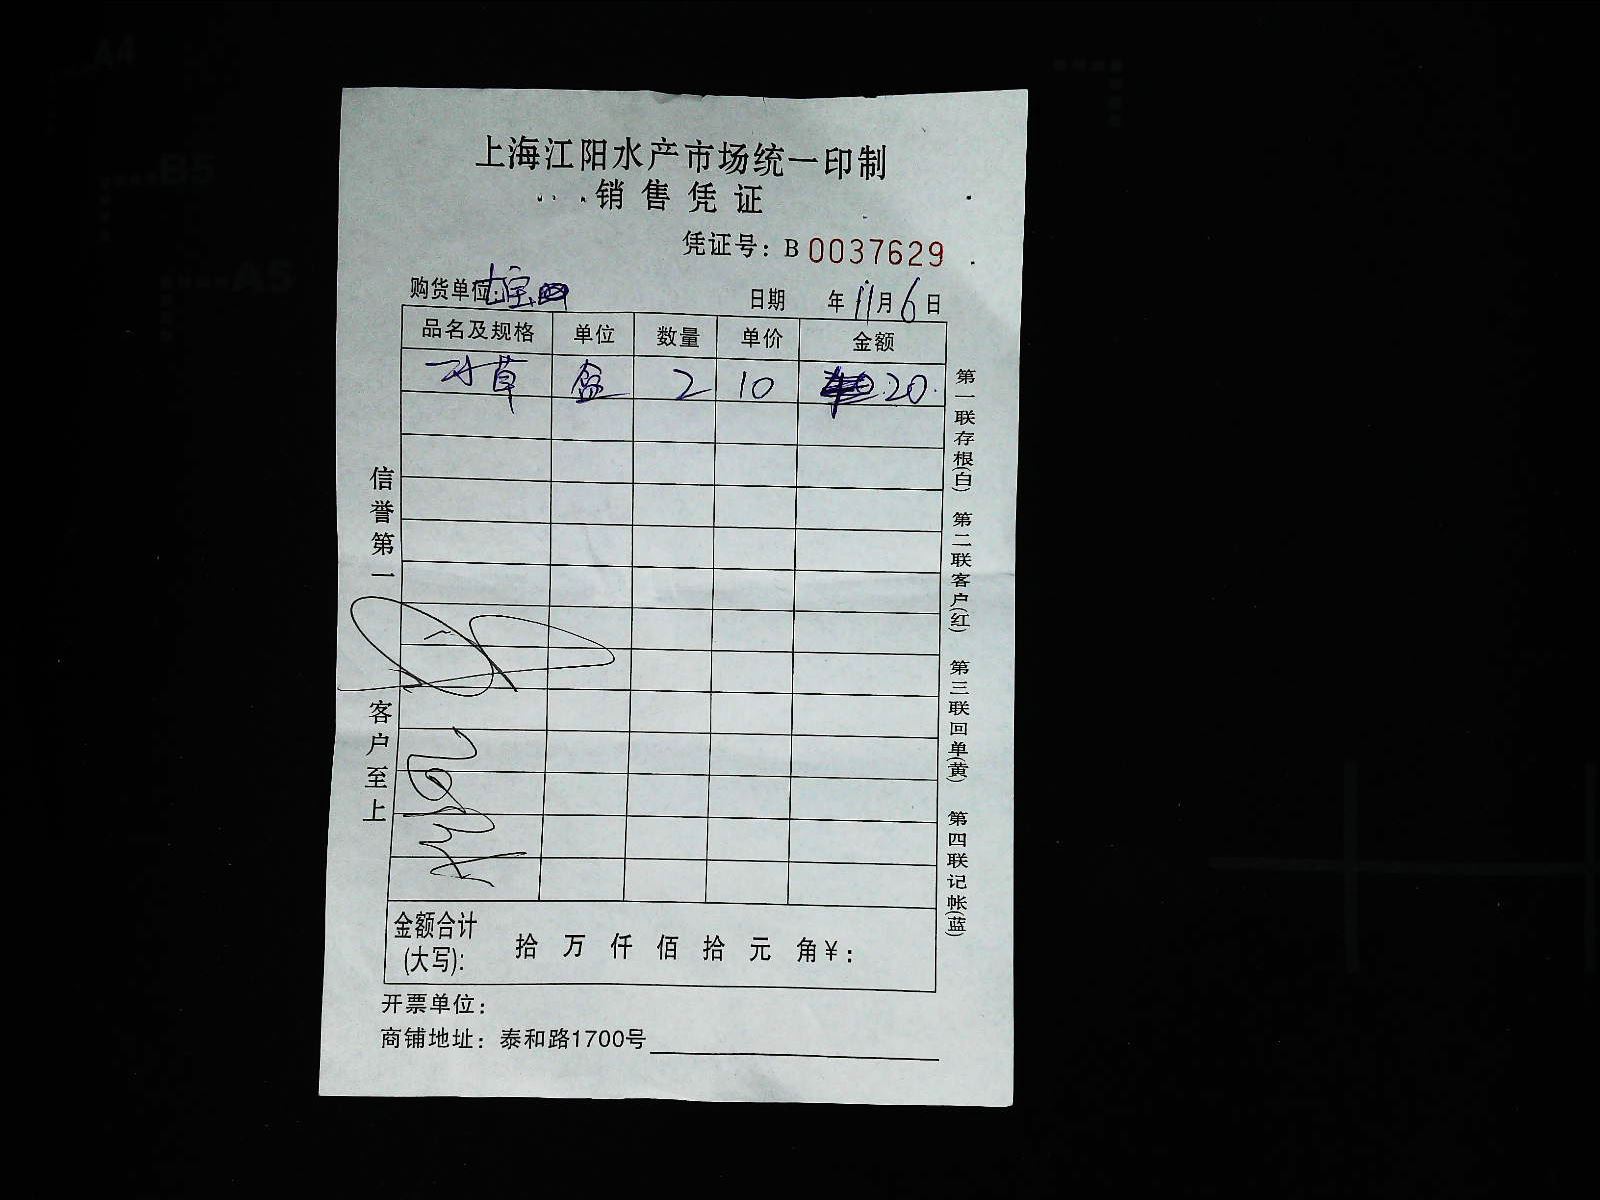 上海江阳水产市场统一印制
销售凭证
凭证号：B 0037629
购货单位：七宝
日期 年 11月 6日
品名及规格 单位 数量 单价 金额
草 盒 2 10 20.
信誉第一 客户至上
第一联存根(白) 第二联客户(红) 第三联回单(黄) 第四联记帐(蓝)
金额合计
(大写)： 拾 万 仟 佰 拾 元 角¥：
开票单位：
商铺地址：泰和路1700号
A4
B5
A5